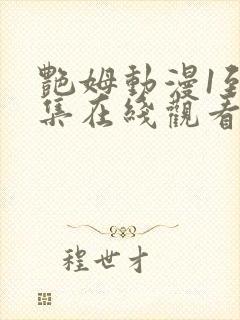 艷姆動漫1至
集在綫觀看
程世才